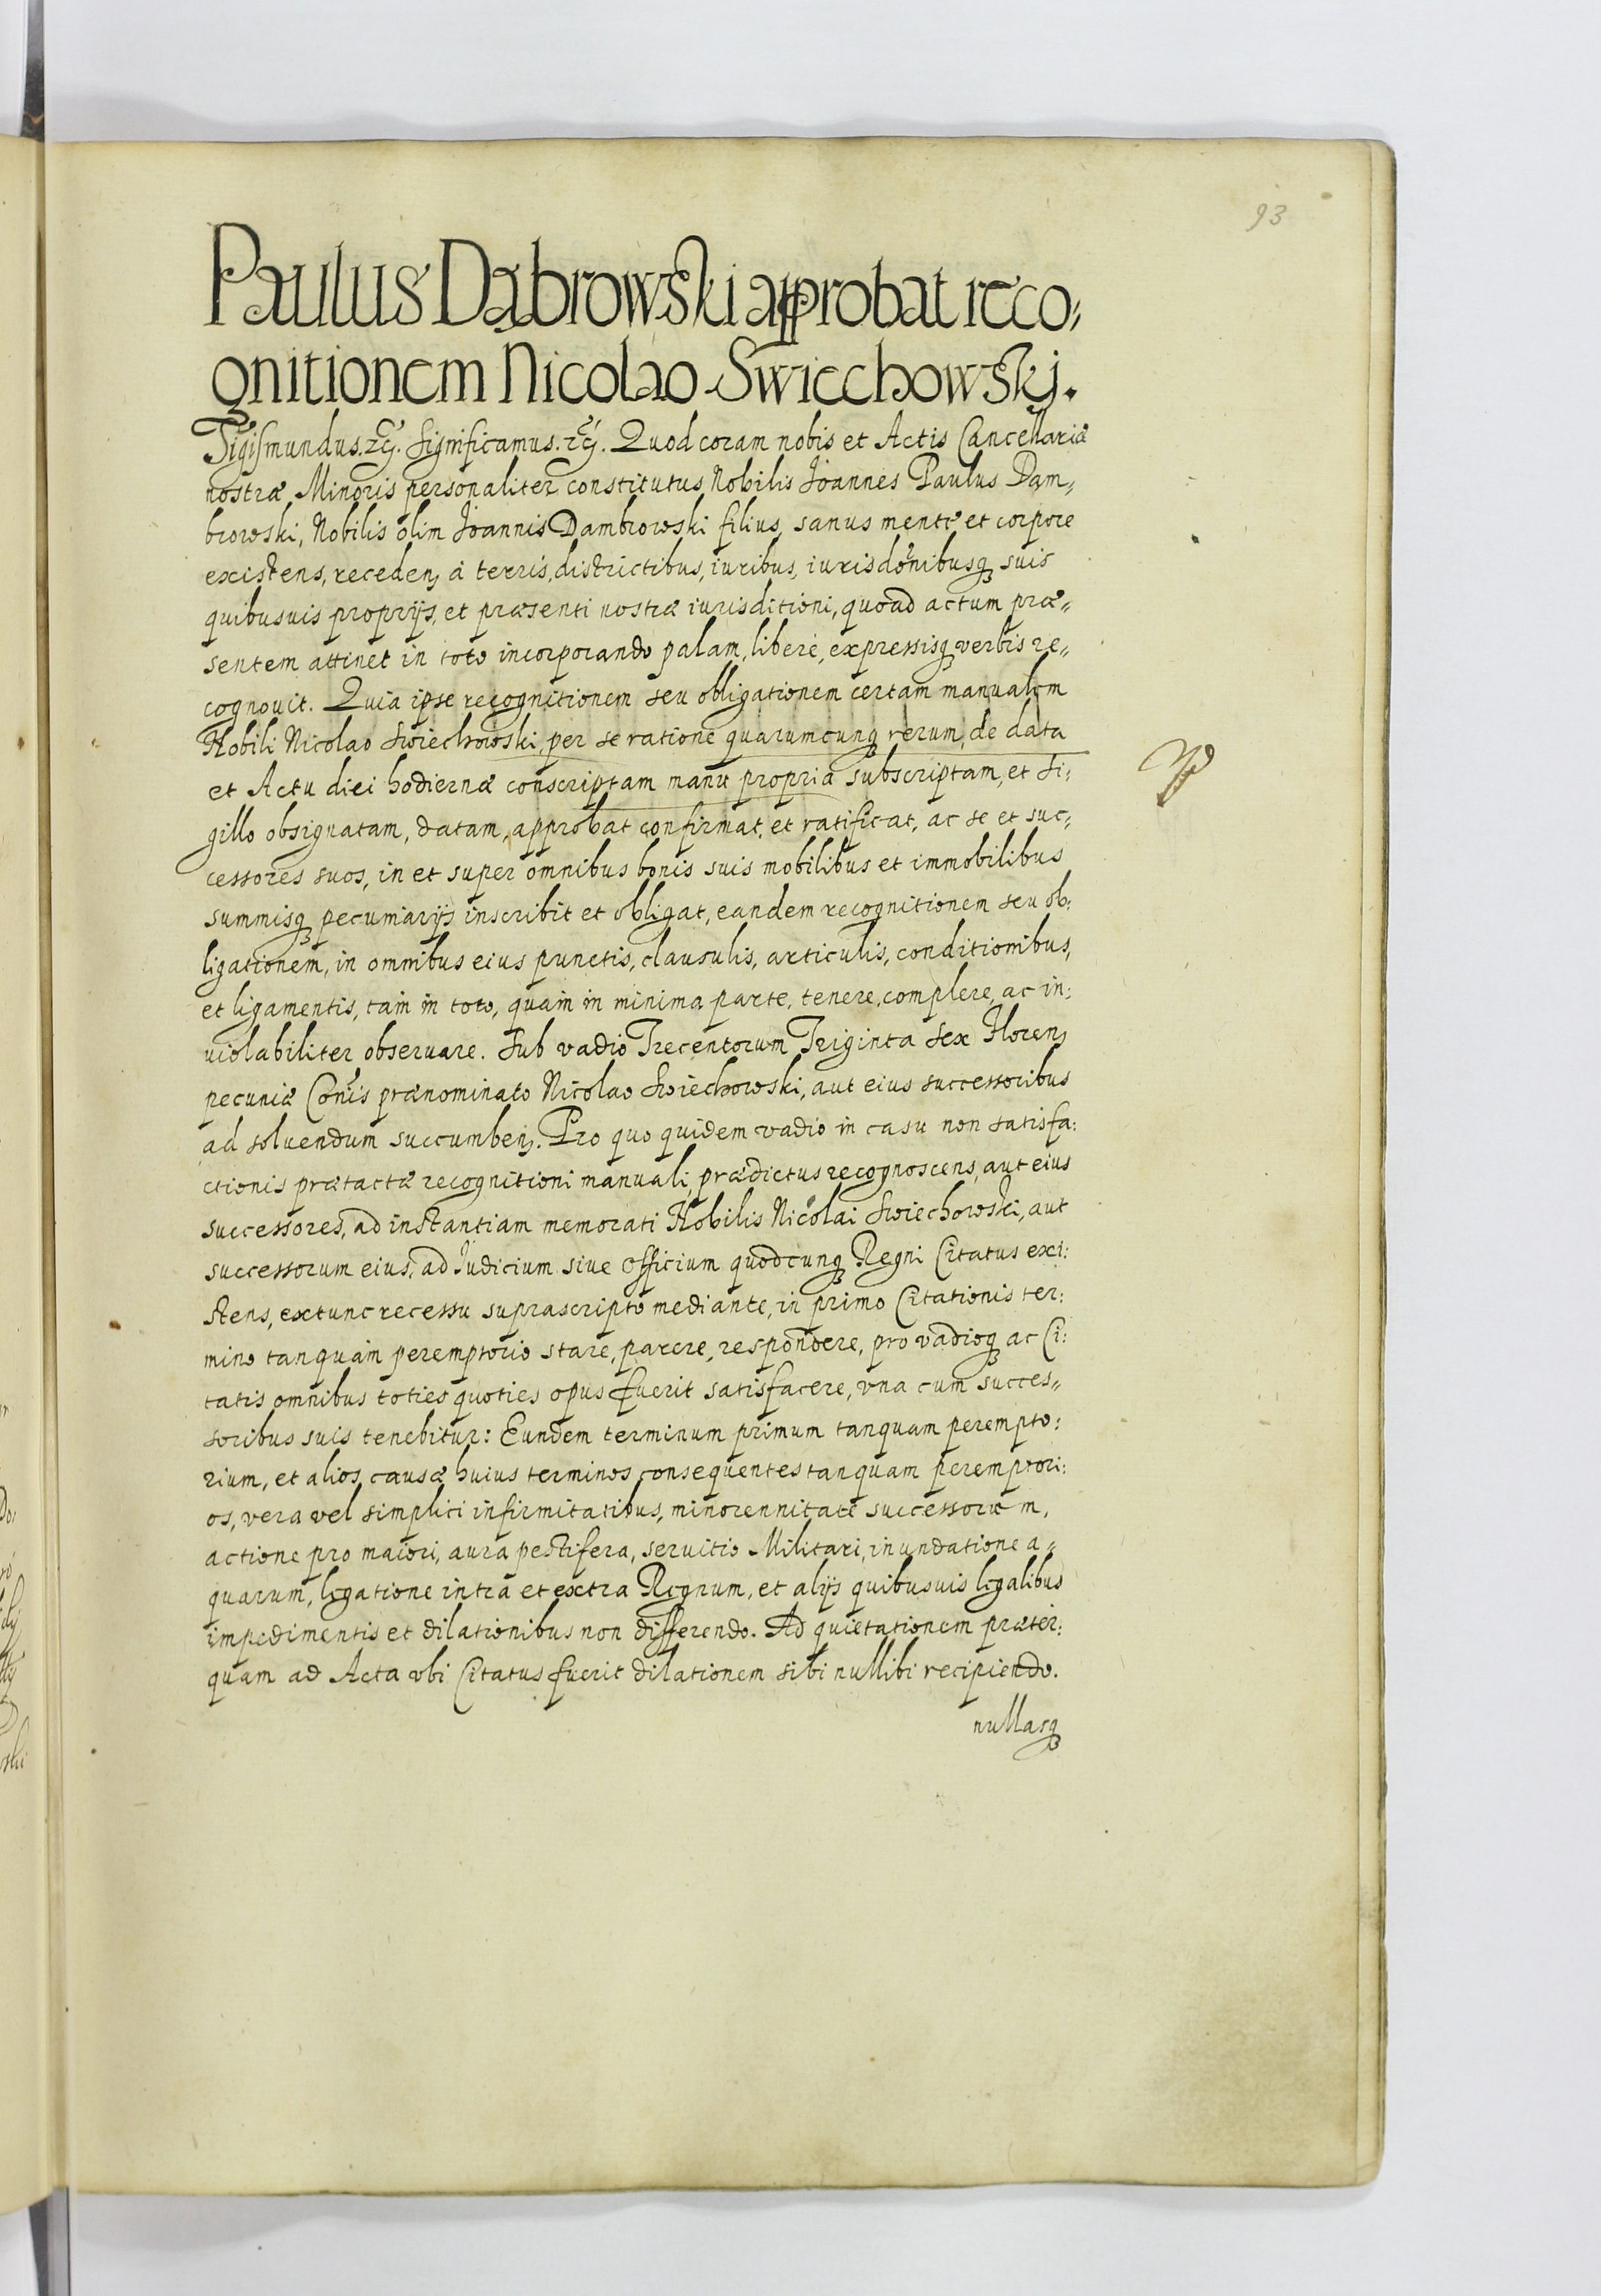 93
Paulus Dąbrowski approbat reco,
gnitionem Nicolao Swiechowskj.
Sigismundus. etc. Significamus. etc. Quod coram nobis et Actis Cancellariæ
nostræ Minoris personaliter constitutus Nobilis Joannes Paulus Dam„
browski, Nobilis olim Joannis Dambrowski filius, sanus mente et corpore
existens, recedenς à terris, districtibus, iuribus, iurisdōnibusqꝫ suis
quibusuis proprijs, et præsenti nostræ iurisditioni, quoad actum præ„
sentem attinet in toto incorporando palam, libere, expressisqꝫ verbis re„
cognouit. Quia ipse recognitionem seu obligationem certam manualem
Nobili Nicolao Swiechowski, per se ratione quarumcunqꝫ rerum, de data
et Actu diei hodiernæ conscriptam manu propria subscriptam, et Si,
gillo obsignatam, datam, approbat confirmat, et ratificat, ac se et suc,
cessores suos, in et super omnibus bonis suis mobilibus et immobilibus
summisqꝫ pecuniarijs inscribit et obligat, eandem recognitionem seu ob:
ligationem, in omnibus eius punctis, clausulis, articulis, conditionibus,
et ligamentis, tam in toto, quàm in minima parte, tenere, complere, ac in:
uiolabiliter obseruare. Sub vadio Trecentorum Triginta sex Florenς
pecuniæ Cōnis prænominato Nicolao Swiechowski, aut eius successoribus
ad soluendum succumbenς. Pro quo quidem vadio in casu non satisfa:
ctionis prætactæ recognitioni manuali, prædictus recognoscens, aut eius
successores, ad instantiam memorati Nobilis Nicolai Swiechowski, aut
successorum eius, ad Judicium siue Officium quodcunqꝫ Regni Citatus exi:
stens, extunc recessu suprascripto mediante, in primo Citationis ter:
mino tanquàm peremptorio stare, parere, respondere, pro vadioqꝫ ac Ci:
tatis omnibus toties quoties opus fuerit satisfacere, vna cum succes„
soribus suis tenebitur: Eundem terminum primum tanquam perempto:
rium, et alios, causæ huius terminos consequentes tanquam peremptori:
os, vera vel simplici infirmitatibus, minorennitate successorum,
actione pro maiori, aura pestifera, seruitio Militari, inundatione a„
quarum, legatione intra et extra Regnum, et alijs quibusuis legalibus
impedimentis et dilationibus non differendo. Ad quietationem præter:
quam ad Acta vbi Citatus fuerit dilationem sibi nullibi recipiendo.
nullasqꝫ